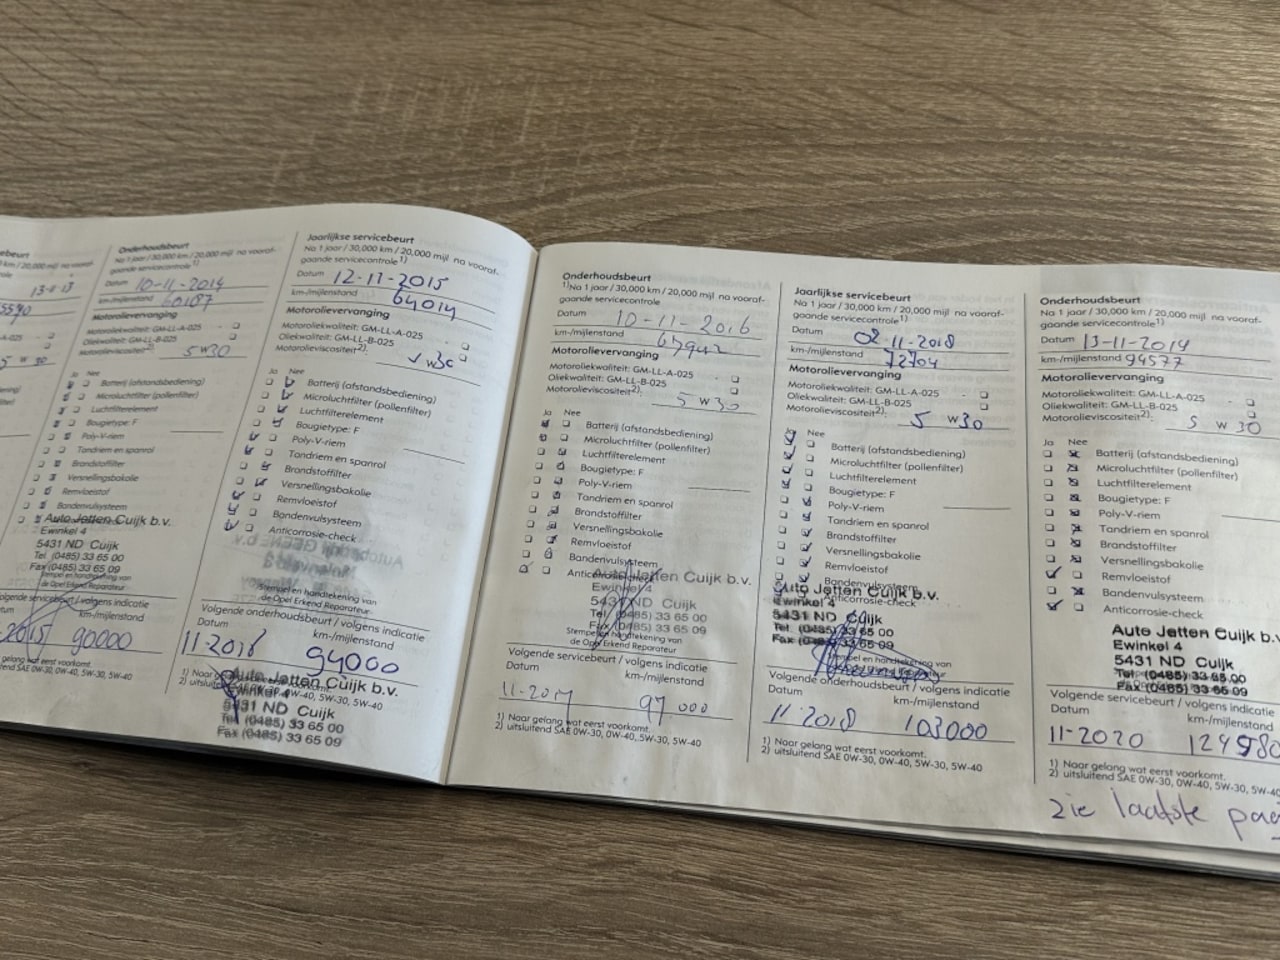 ebeurt
20,000 mijl na vooraf-
13-11-13
5 w 30
Onderhoudsbeurt
Na 1 jaar / 30,000 km / 20,000 mijl na vooraf-
gaande servicecontrole 1)
Datum 10-11-2014
km-/mijlenstand 60187
Motorolievervanging
Motoroliekwaliteit: GM-LL-A-025
Oliekwaliteit: GM-LL-B-025
Motorolieviscositeit2): 5 w30
Ja Nee
Batterij (afstandsbediening)
Microluchtfilter (pollenfilter)
Luchtfilterelement
Bougietype: F
Poly-V-riem
Tandriem en spanrol
Brandstoffilter
Versnellingsbakolie
Remvloeistof
Bandenvulsysteem
Auto Jetten Cuijk b.v.
Ewinkel 4
5431 ND Cuijk
Tel. (0485) 33 65 00
Fax (0485) 33 65 09
Stempel en handtekening van
de Opel Erkend Reparateur
olgende servicebeurt / volgens indicatie
km-/mijlenstand
2015 90000
gelang wat eerst voorkomt.
SAE 0W-30, 0W-40, 5W-30, 5W-40
Jaarlijkse servicebeurt
Na 1 jaar / 30,000 km / 20,000 mijl na vooraf-
gaande servicecontrole 1)
Datum 12-11-2015
km-/mijlenstand 64014
Motorolievervanging
Motoroliekwaliteit: GM-LL-A-025
Oliekwaliteit: GM-LL-B-025
Motorolieviscositeit2):
Ja Nee
Batterij (afstandsbediening)
Microluchtfilter (pollenfilter)
Luchtfilterelement
Bougietype: F
Poly-V-riem
Tandriem en spanrol
Brandstoffilter
Versnellingsbakolie
Remvloeistof
Bandenvulsysteem
Anticorrosie-check
Stempel en handtekening van
de Opel Erkend Reparateur
Volgende onderhoudsbeurt / volgens indicatie
Datum km-/mijlenstand
11-2016 94000
1) Naar gelang
2) uitsluitend 0W-40, 5W-30, 5W-40
Auto Jetten Cuijk b.v.
Ewinkel 4
5431 ND Cuijk
Tel. (0485) 33 65 00
Fax (0485) 33 65 09
Onderhoudsbeurt
1)Na 1 jaar / 30,000 km / 20,000 mijl na vooraf-
gaande servicecontrole
Datum 10-11-2016
km-/mijlenstand
Motorolievervanging
Motoroliekwaliteit: GM-LL-A-025
Oliekwaliteit: GM-LL-B-025
Motorolieviscositeit2): 5 w30
Ja Nee
Batterij (afstandsbediening)
Microluchtfilter (pollenfilter)
Luchtfilterelement
Bougietype: F
Poly-V-riem
Tandriem en spanrol
Brandstoffilter
Versnellingsbakolie
Remvloeistof
Bandenvulsysteem
Anticorrosie-check
Auto Jetten Cuijk b.v.
Ewinkel 4
5431 ND Cuijk
Tel. (0485) 33 65 00
Fax (0485) 33 65 09
Stempel en handtekening van
de Opel Erkend Reparateur
Volgende servicebeurt / volgens indicatie
Datum km-/mijlenstand
11-2017 97 000
1) Naar gelang wat eerst voorkomt.
2) uitsluitend SAE 0W-30, 0W-40, 5W-30, 5W-40
Jaarlijkse servicebeurt
Na 1 jaar / 30,000 km / 20,000 mijl na vooraf-
gaande servicecontrole1)
Datum 02-11-2018
km-/mijlenstand 72704
Motorolievervanging
Motoroliekwaliteit: GM-LL-A-025
Oliekwaliteit: GM-LL-B-025
Motorolieviscositeit2): 5 w30
Ja Nee
Batterij (afstandsbediening)
Microluchtfilter (pollenfilter)
Luchtfilterelement
Bougietype: F
Poly-V-riem
Tandriem en spanrol
Brandstoffilter
Versnellingsbakolie
Remvloeistof
Bandenvulsysteem
Anticorrosie-check
Auto Jetten Cuijk b.v.
Ewinkel 4
5431 ND Cuijk
Tel. (0485) 33 65 00
Fax (0485) 33 65 09
Stempel en handtekening van
Volgende onderhoudsbeurt / volgens indicatie
Datum km-/mijlenstand
11-2018 103000
1) Naar gelang wat eerst voorkomt.
2) uitsluitend SAE 0W-30, 0W-40, 5W-30, 5W-40
Onderhoudsbeurt
Na 1 jaar / 30,000 km / 20,000 mijl na vooraf-
gaande servicecontrole1)
Datum 13-11-2019
km-/mijlenstand 94577
Motorolievervanging
Motoroliekwaliteit: GM-LL-A-025
Oliekwaliteit: GM-LL-B-025
Motorolieviscositeit2): 5 w 30
Ja Nee
Batterij (afstandsbediening)
Microluchtfilter (pollenfilter)
Luchtfilterelement
Bougietype: F
Poly-V-riem
Tandriem en spanrol
Brandstoffilter
Versnellingsbakolie
Remvloeistof
Bandenvulsysteem
Anticorrosie-check
Auto Jetten Cuijk b.v
Ewinkel 4
5431 ND Cuijk
Tel. (0485) 33 65 00
Fax (0485) 33 65 09
Volgende servicebeurt / volgens indicatie
Datum km-/mijlenstand
11-2020 124580
1) Naar gelang wat eerst voorkomt.
2) uitsluitend SAE 0W-30, 0W-40, 5W-30, 5W-40
zie laatste pag